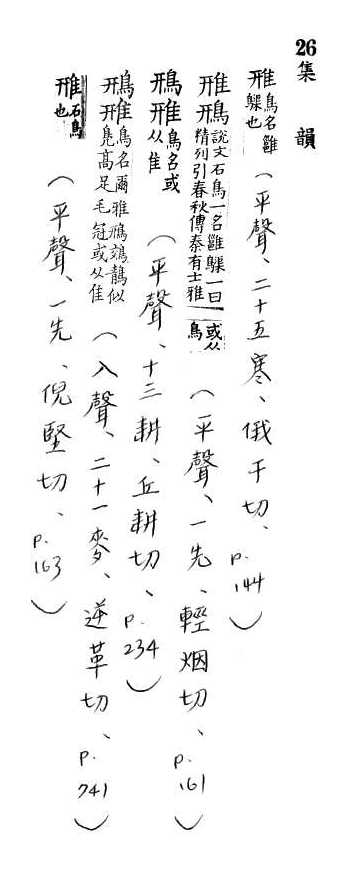 26集 韻
雃 鳥名雝也 (平聲、二十五寒、俄干切、p.144)
雃鳽 說文石鳥一名雝一曰精列引春秋傳秦有士雃或从鳥 (平聲、一先、輕烟切、p.161)
鳽雃 鳥名或从隹 (平聲、十三耕、丘耕切、p.234)
鳽雃 鳥名爾雅鳽鵁鶄似鳧高足毛冠或从隹 (入聲、二十一麥、逆革切、p.741)
雃 石鳥也 (平聲、一先、倪堅切、p.163)